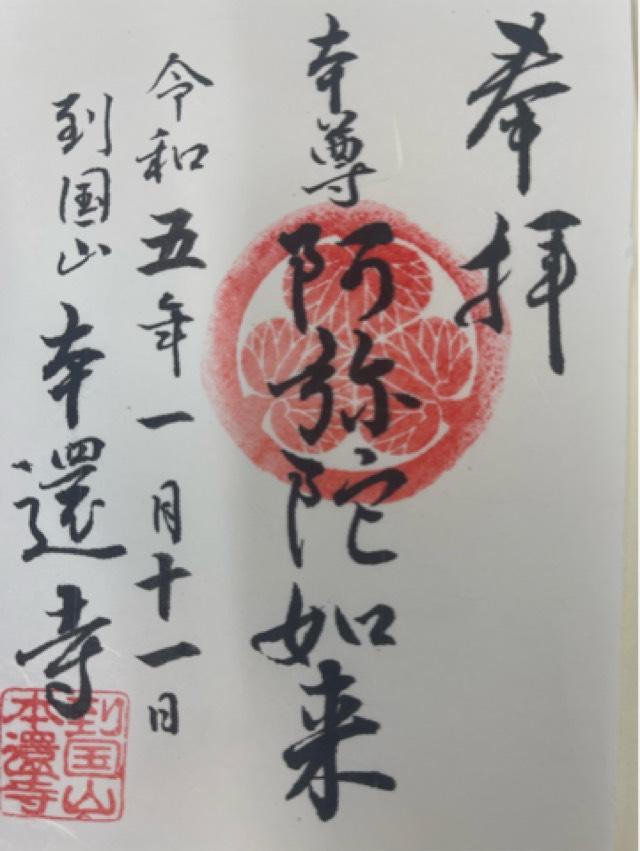 奉拝
本尊
阿弥陀如来
令和五年一月十一日
到国山 本還寺
到国山
本還寺